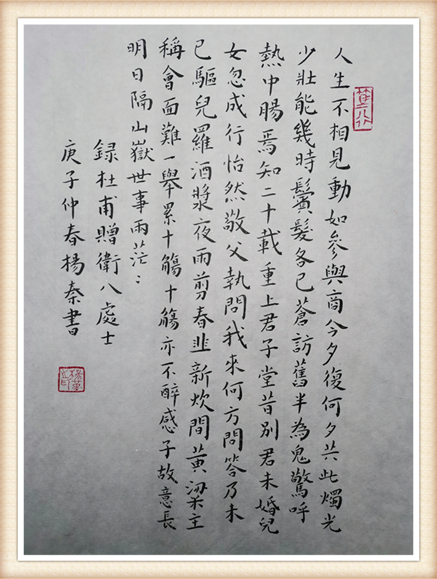 人生不相見動如參與商今夕復何夕共此燭光
少壯能幾時鬢髮各已蒼訪舊半為鬼驚呼
熱中腸焉知二十載重上君子堂昔別君未婚兒
女忽成行怡然敬父執問我來何方問答乃未
已驅兒羅酒漿夜雨剪春韭新炊間黃粱主
稱會面難一舉累十觴十觴亦不醉感子故意長
明日隔山嶽世事兩茫〻
録杜甫贈衛八處士
庚子仲春楊秦書